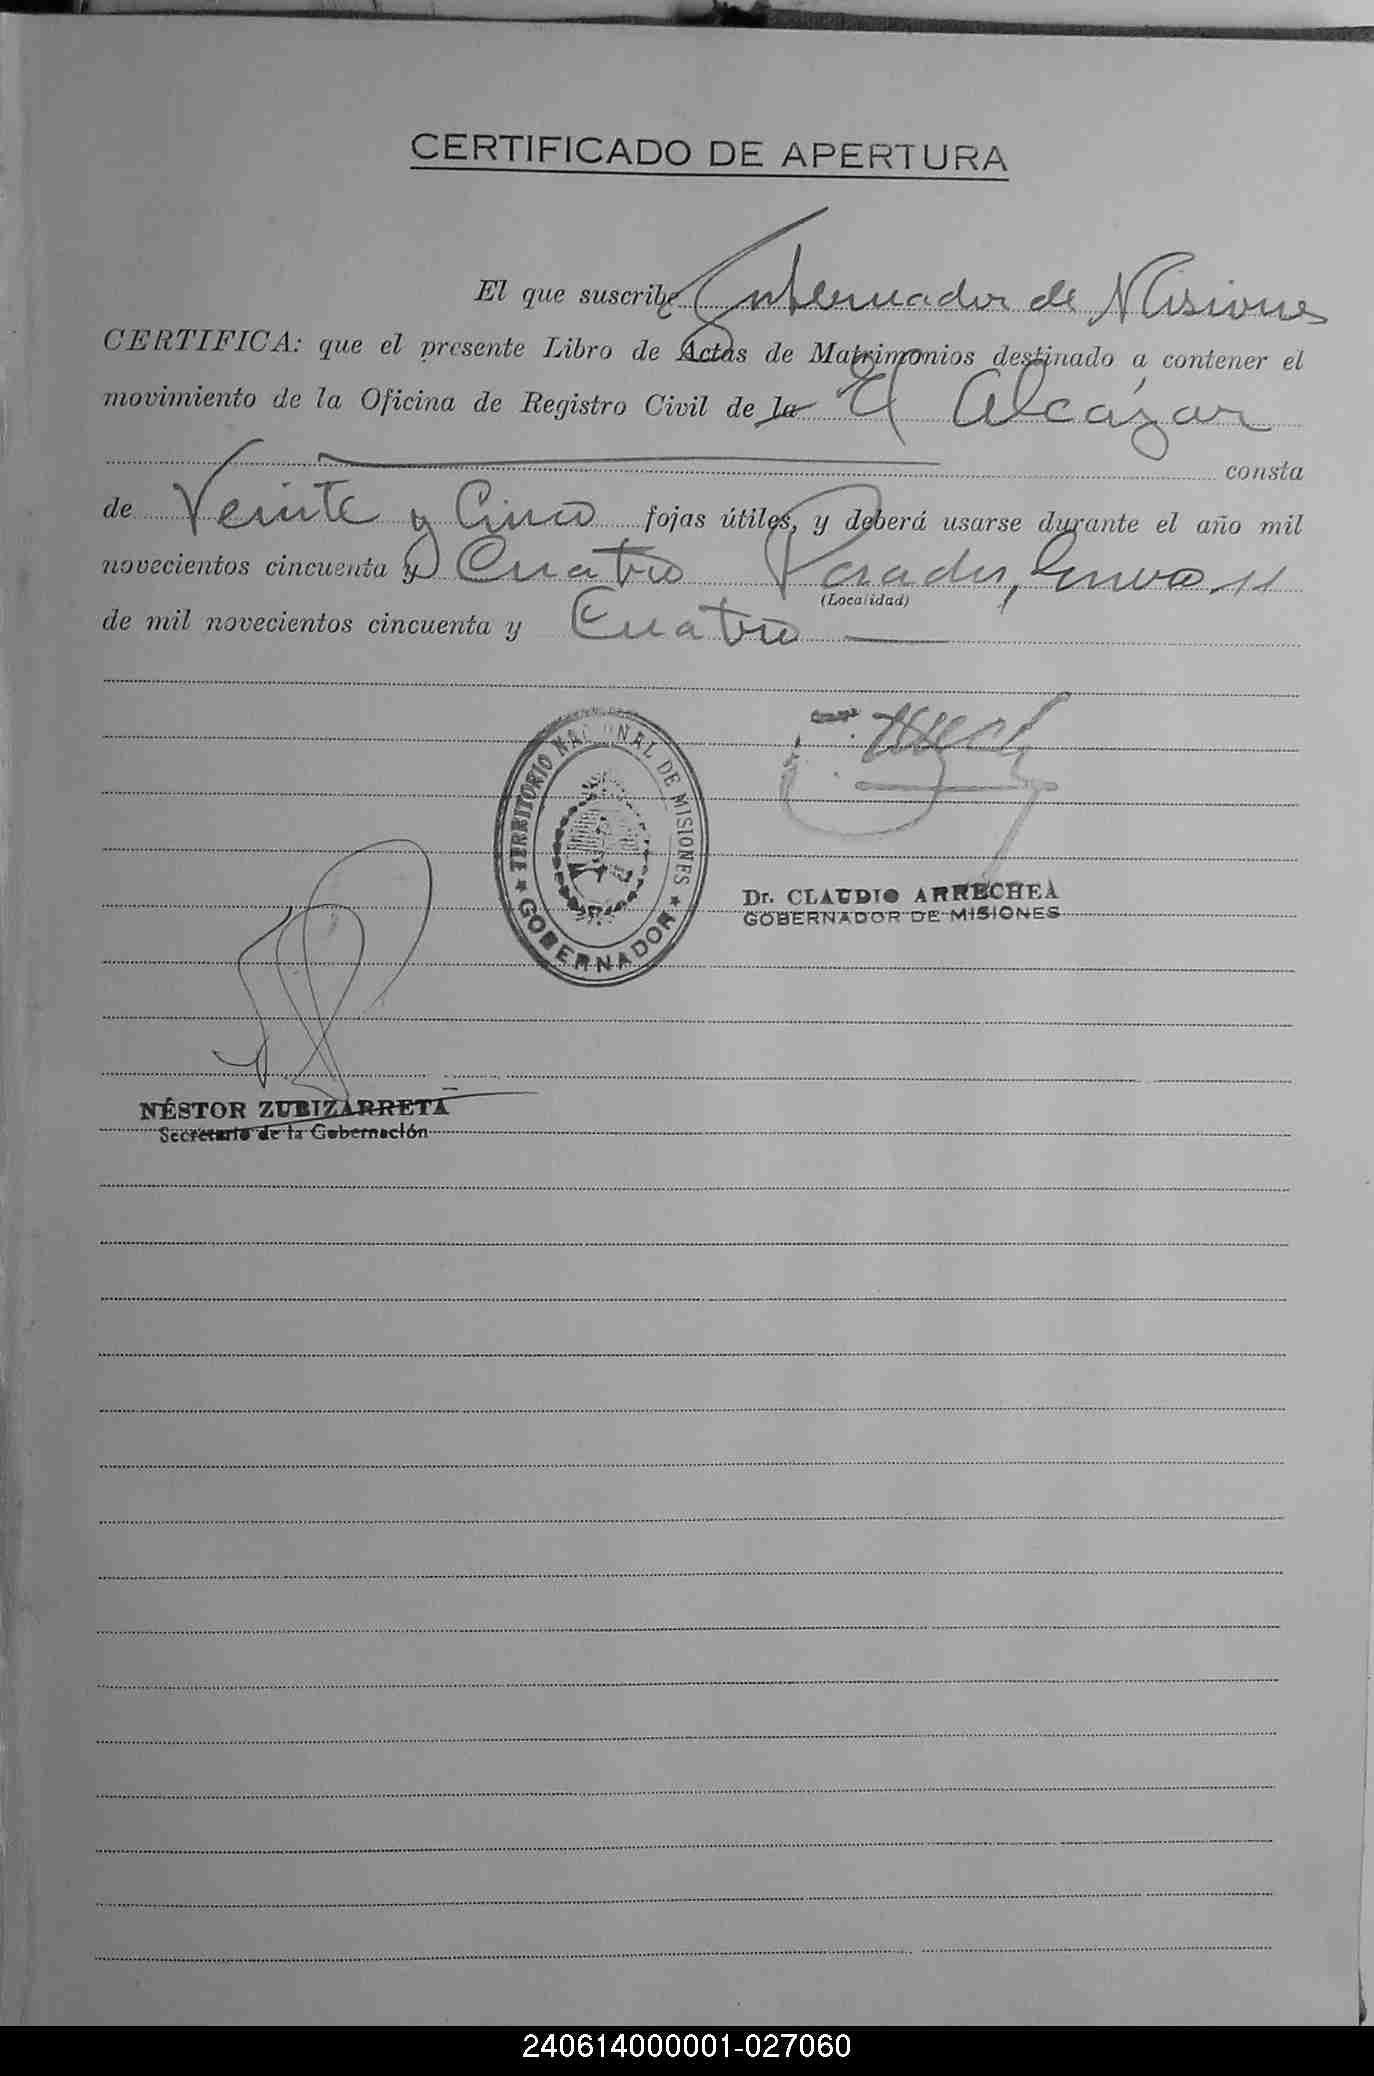 CERTIFICADO DE APERTURA
El que suscribe Gobernador de Misiones
CERTIFICA: que el presente Libro de Actas de Matrimonios destinado a contener el
movimiento de la Oficina de Registro Civil de la El Alcázar
consta
de Veinte y Cinco fojas útiles, y deberá usarse durante el año mil
novecientos cincuenta y Cuatro Posadas, Enero 11
(Localidad)
de mil novecientos cincuenta y Cuatro
TERRITORIO NACIONAL DE MISIONES
GOBERNADOR
Dr. CLAUDIO ARRECHEA
GOBERNADOR DE MISIONES
NÉSTOR ZUBIZARRETA
Secretario de la Gobernación
240614000001-027060